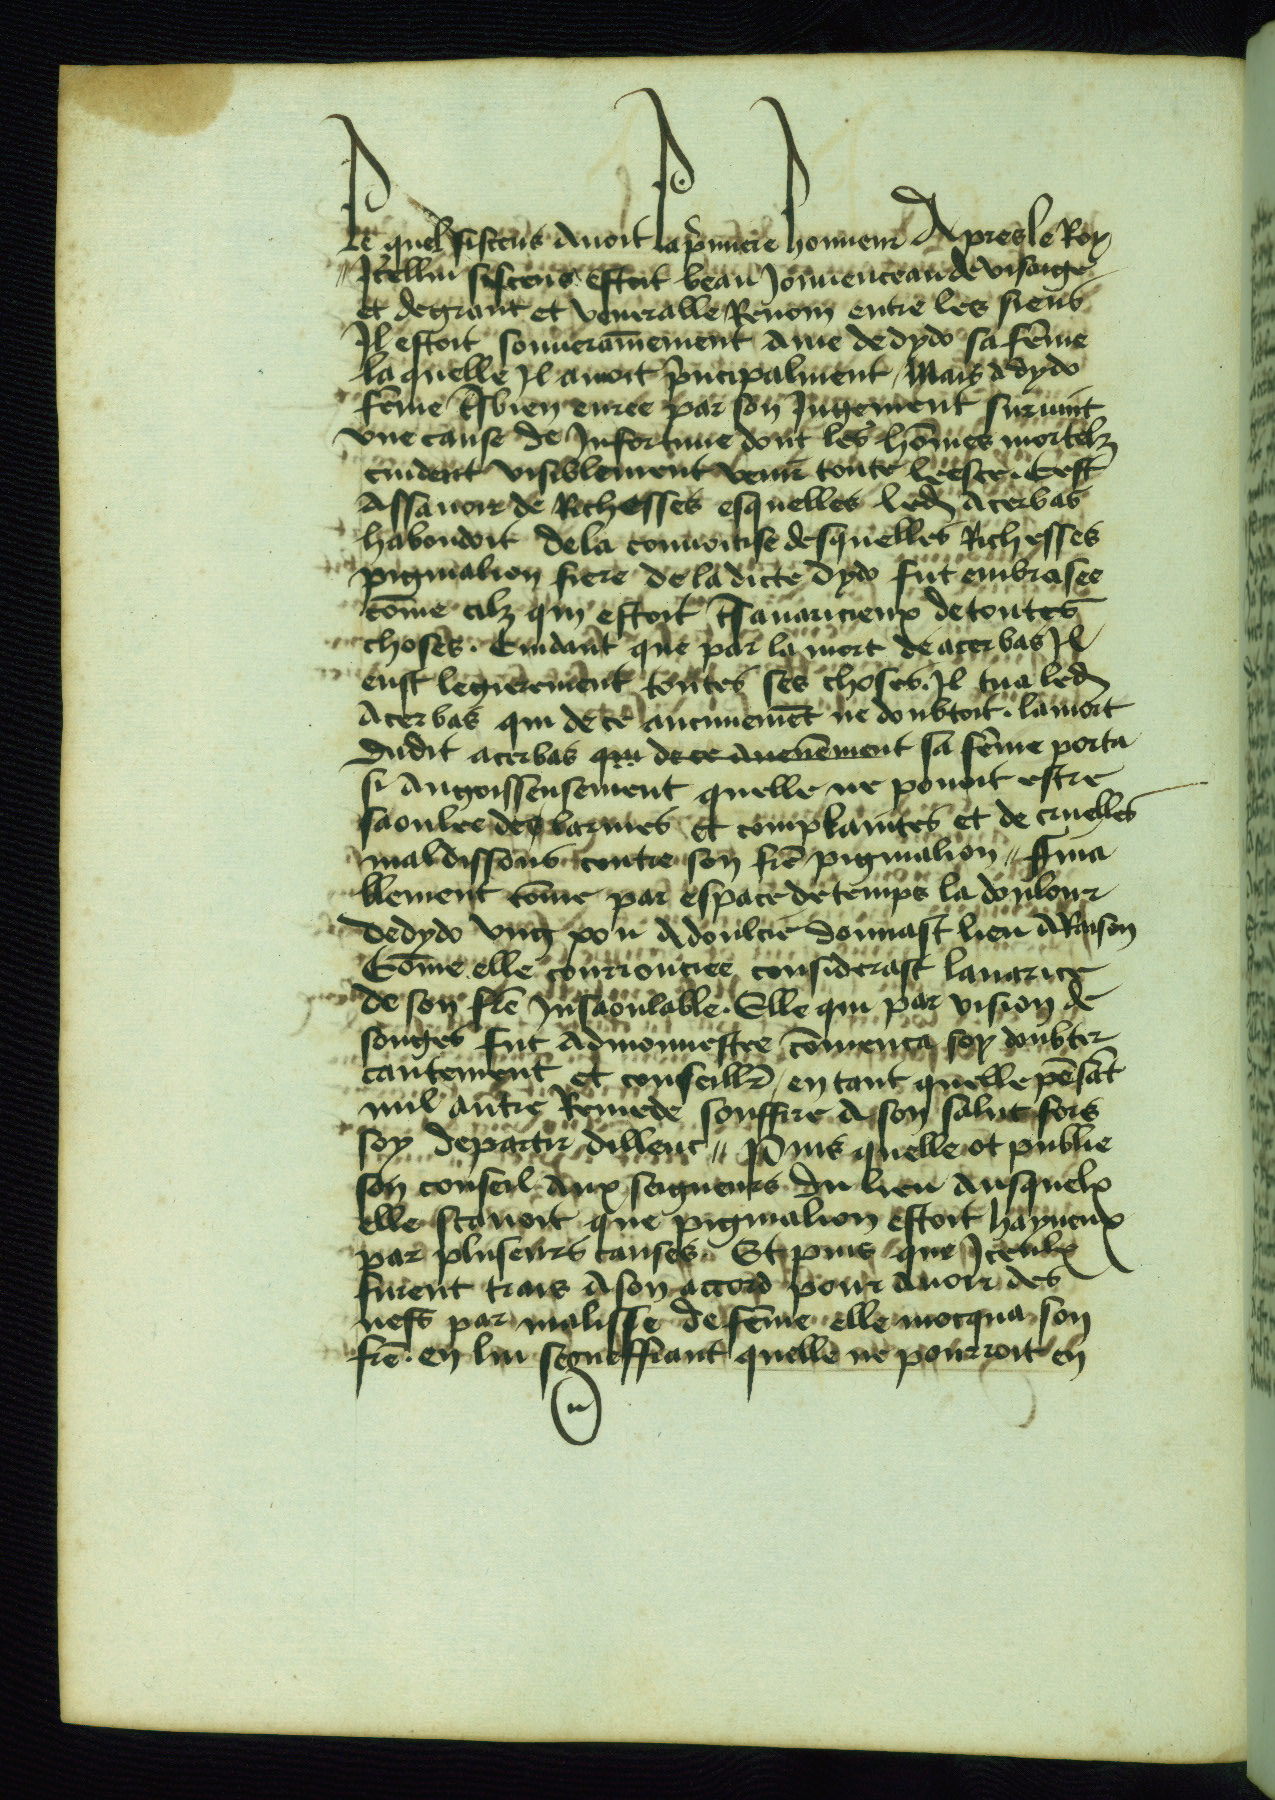 Le quel sisceus avoit la p̄miere honneur Apres le Roy
// Icellui sisceus estoit beau Jouuenceau de visaige
et de grant et venerable Renom entre les siens
Il estoit souuerain̄ement Ame de dydo sa fēme
la quelle Il amoit p̄ncipalment / Mais a dydo
fēme t̄sbien euree par son Jugement suruint
vne cause de Infortune dont les hōmes mortelz
cuident visiblement venir toute leesse. Cest
Assauoir de Richesses esquelles led̄ Acerbas
habondoit de la conuoitise desquelles Richesses
pigmalion frere de la dicte dydo fut embrasee
cōme cilz qui estoit t̄sauaricieux de toutes
choses. Cuidant que par la mort de acerbas Il
eust legierement toutes ses choses. Il tua led̄
Acerbas qui de ce aucunemēt ne doubtoit. la mort
dudit acerbas qui de ce auenēment sa fēme porta
si Angoisseusement quelle ne pouoit estre
saoulee de larmes et complaintes et de cruelles
maldissons contre son frē pigmalion // Fina
blement cōme par espace de temps la doulour
de dydo vng pou Adoulcie donnast lieu A Raison
Cōme elle courrouciee considerast lauarice
de son frē Insaoulable. Elle qui par vision de
songes fut Admonnestee cōmenca soy doubter
cautement et conseillr̄ / en tant quelle pēsat
nul autre Remede souffire A son salut fors
soy departir dillenc // Puis quelle ot publie
son conseil Aux seigneurs du lieu Ausquelx
elle scauoit que pigmalion estoit hayneux
par pluseurs causes. Et puis que Iceulx
furent trais A son accord pour Auoir des
nefs par malisse de fēme elle mocqua son
frē. en lui segneffiant quelle ne pourroit en